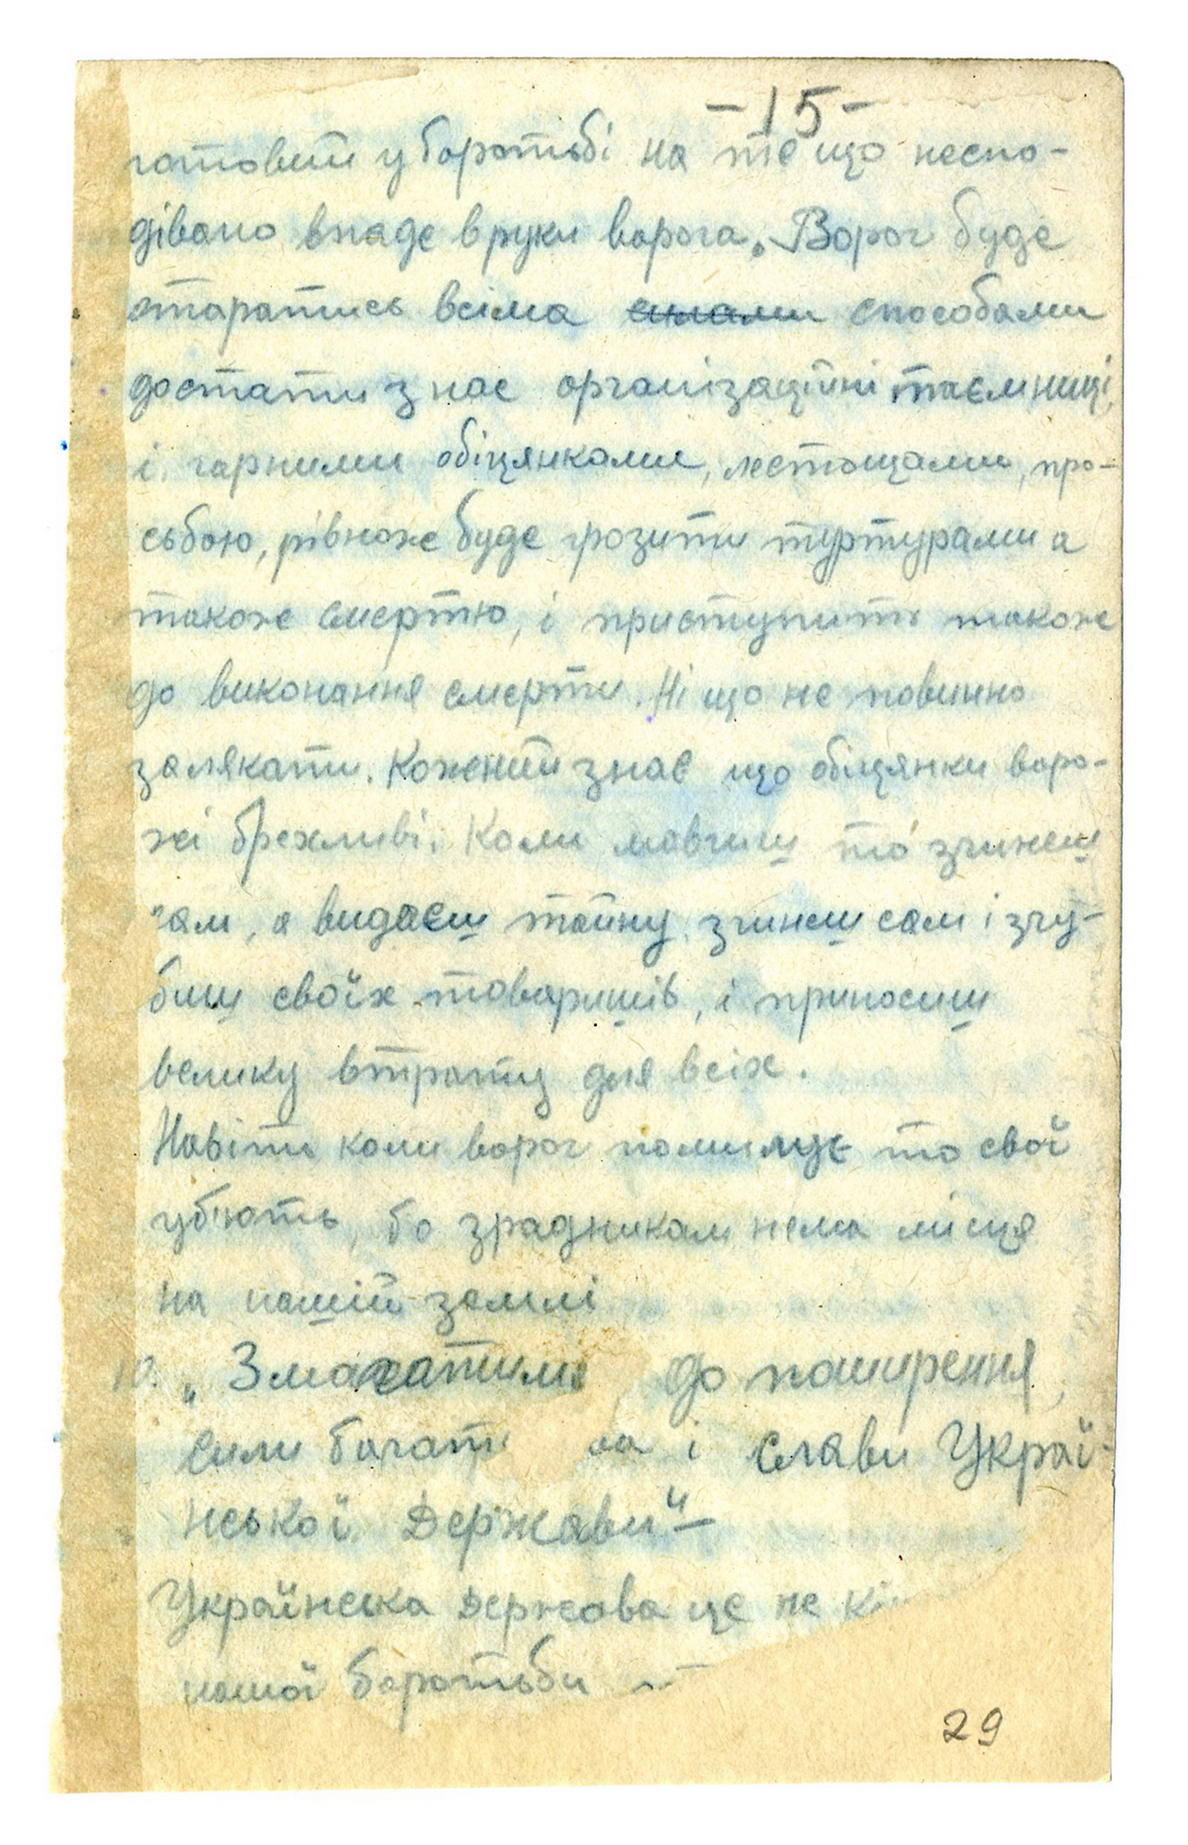 -15-
готовий у боротьбі на те що неспо-
дівано впаде в руки ворога. Ворог буде
старатись всіма силами способами
достати з нас організаційні таємниці,
і гарними обіцянками, лестощами, про-
сьбою, рівноже буде грозити туртурами а
також смертю, і приступить також
до виконання смерти. Ні що не повинно
залякати. Кожений знає що обіцянки воро-
жі брехливі. Коли мовчиш то згинеш
сам, а видаєш тайну згинеш сам і згу-
биш своїх товаришів, і приносиш
велику втрату для всіх.
Навіть коли ворог помилує то свої
уб'ють, бо зрадникам нема місця
на нашій землі
10. „Змагатиме до поширення,
сили багат ва і слави Украї-
нської Держави"—
Українська Держава це не
нашої боротьби
29